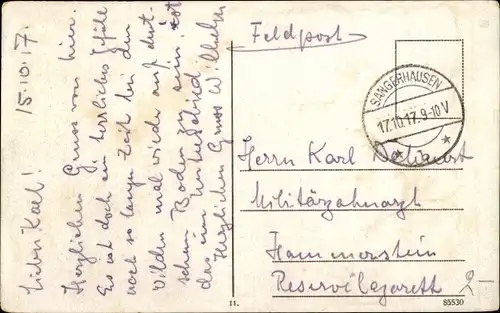 15.10.17.
Lieber Karl!
Herzlichen Gruss von hier.
Es ist doch ein herrliches Gefühl
noch so lange Zeit bei den
Wilden mal wieder auf deut-
schem Boden zu sein. ist
das ein
Herzlichen Gruss Wilhelm
Feldpost
SANGERHAUSEN
17.10.17.9-10V
Herrn Karl
Militärzahnarzt
Hammerstein
Reservelazarett 2-
11.
85530